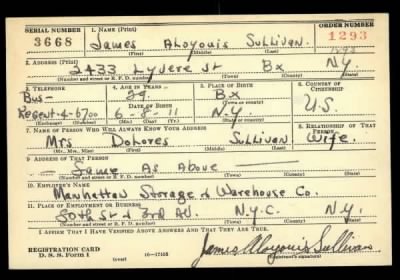 SERIAL NUMBER 1. NAME (Print) ORDER NUMBER
3668 James Aloyouis Sullivan 1293
(First) (Middle) (Last)
2. ADDRESS (Print)
2433 Lydere St Bx N.Y.
(Number and street or R. F. D. number) (Town) (County) (State)
3. TELEPHONE 4. AGE IN YEARS 5. PLACE OF BIRTH 6. COUNTRY OF CITIZENSHIP
Bus- Bx
DATE OF BIRTH (Town or county)
Regent-4-6700 6-8-11 N.Y. U.S.
(Exchange) (Number) (Mo.) (Day) (Yr.) (State or country)
7. NAME OF PERSON WHO WILL ALWAYS KNOW YOUR ADDRESS 8. RELATIONSHIP OF THAT PERSON
Mrs Dolores Sullivan Wife
(Mr., Mrs., Miss) (First) (Middle) (Last)
9. ADDRESS OF THAT PERSON
Same As Above
(Number and street or R. F. D. number) (Town) (County) (State)
10. EMPLOYER'S NAME
Manhattan Storage & Warehouse Co.
11. PLACE OF EMPLOYMENT OR BUSINESS
50th St & 3rd Av. N.Y.C. N.Y.
(Number and street or R. F. D. number) (Town) (County) (State)
I AFFIRM THAT I HAVE VERIFIED ABOVE ANSWERS AND THAT THEY ARE TRUE.
REGISTRATION CARD James Aloyouis Sullivan
D. S. S. Form 1 (over) 16-17105